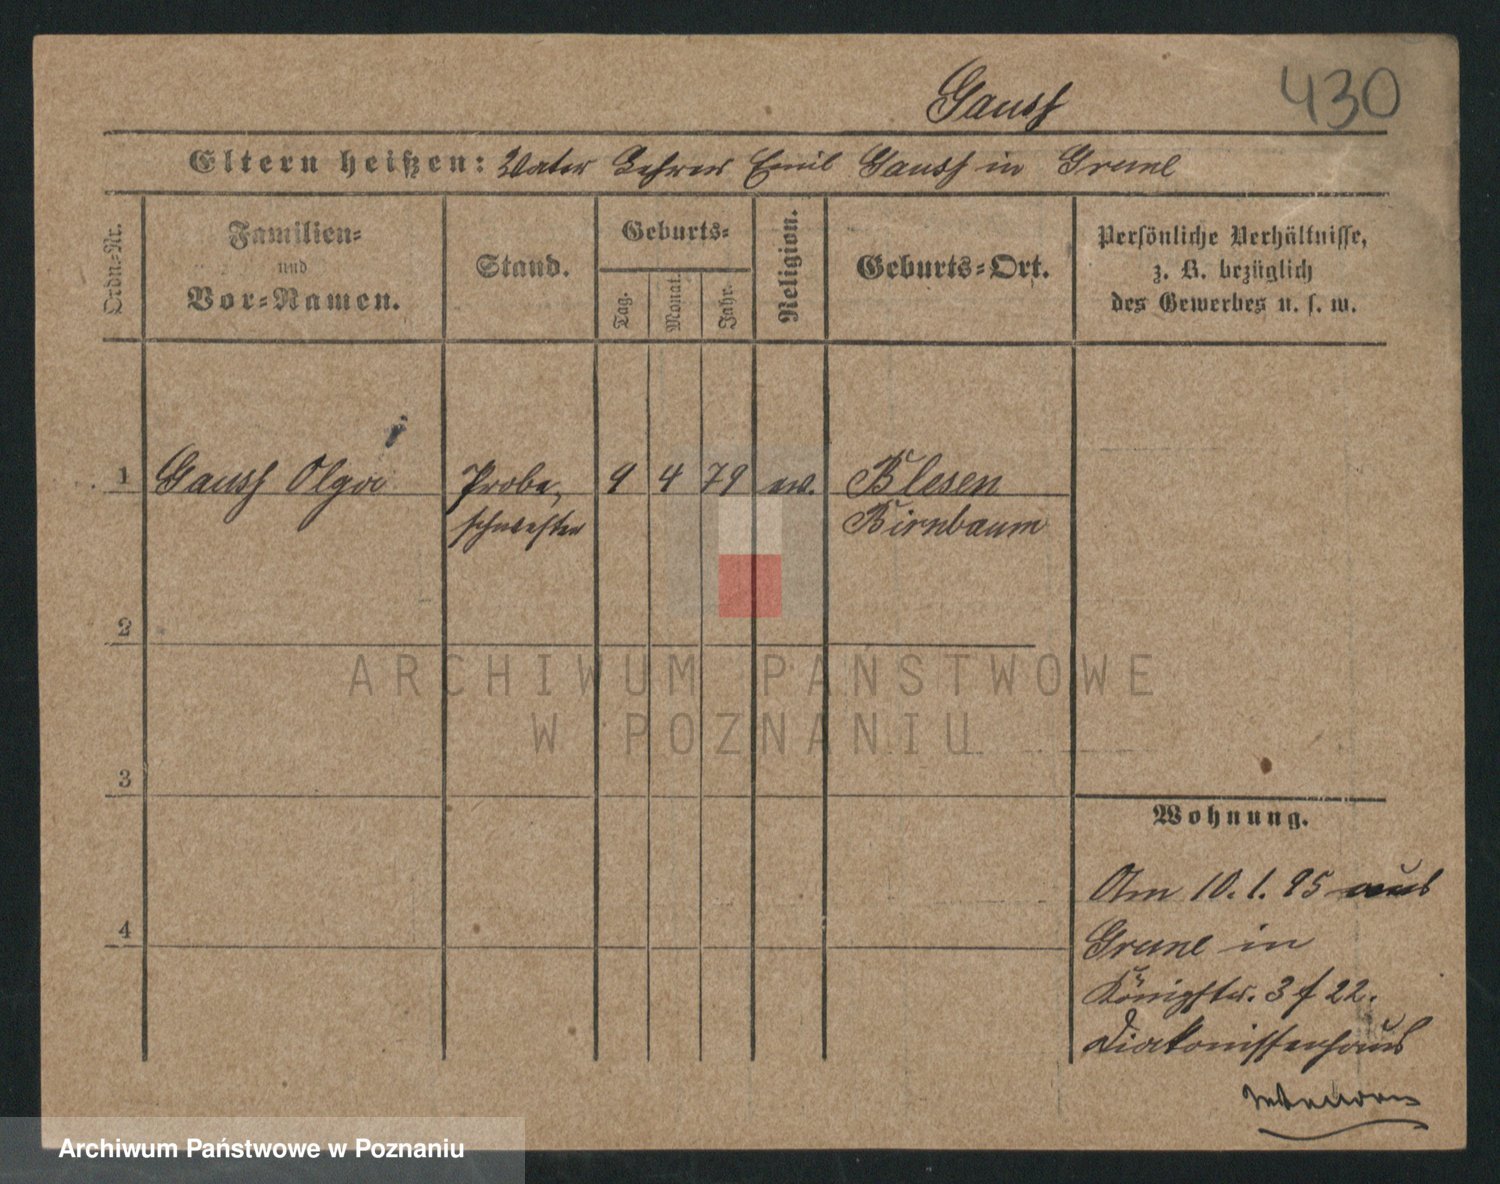 Gauss
430
Eltern heißen: Vater Lehrer Emil Gauss in Grune
Ordn.-Nr.
Familien-
und
Vor-Namen.
Stand.
Geburts-
Tag.
Monat.
Jahr.
Religion.
Geburts-Ort.
Persönliche Verhältnisse,
z. B. bezüglich
des Gewerbes u. s. w.
1 Gauss Olga Probe- 9 4 79 ev. Blesen
schwester Birnbaum
2
3
4
Wohnung.
Am 10. 1. 95 aus
Grune in
Königstr. 3 f 22.
Diakonissenhaus
ARCHIWUM PAŃSTWOWE
W POZNANIU
Archiwum Państwowe w Poznaniu